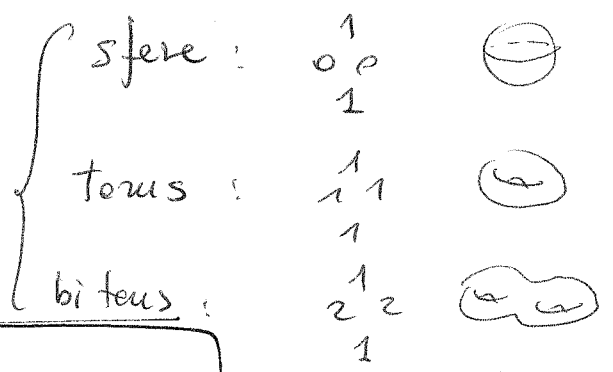 1
sfere : 0 0
1
1
torus : 1 1
1
1
bitorus : 2 2
1